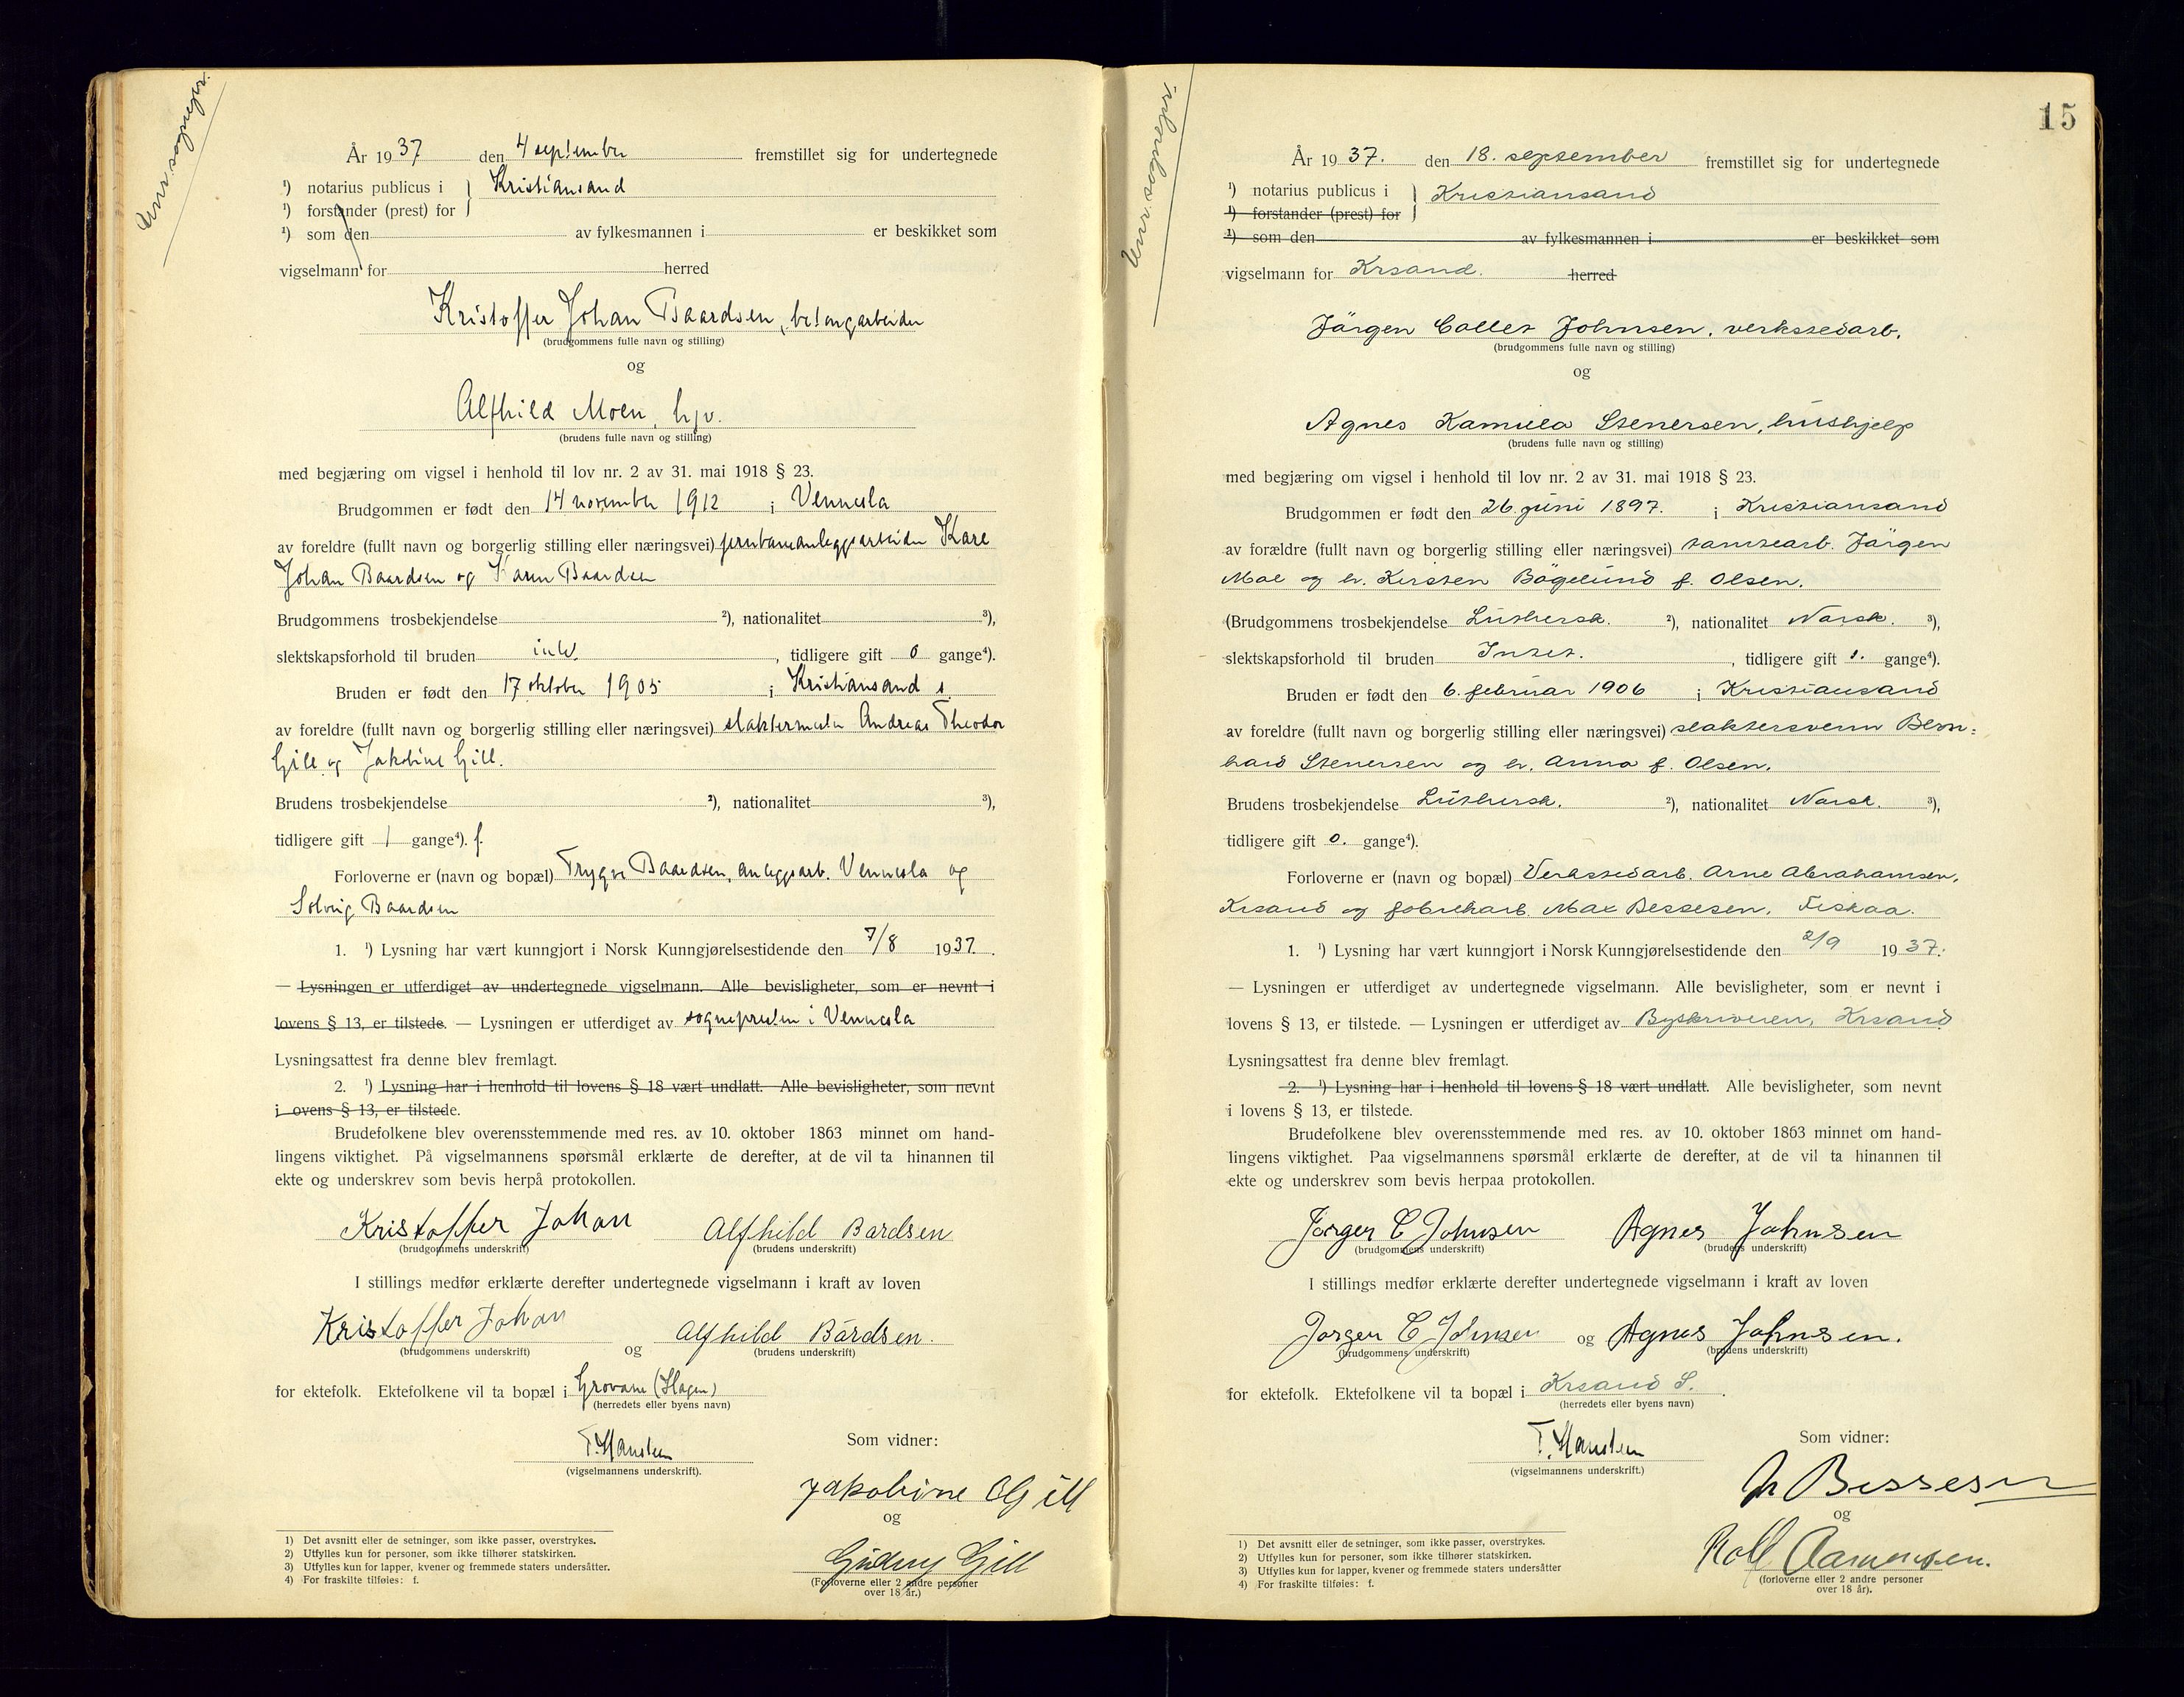 Anm. sognepr.
År 1937 den 4 september fremstillet sig for undertegnede
¹) notarius publicus i } Kristiansand
¹) forstander (prest) for
¹) som den av fylkesmannen i er beskikket som
vigselmann for herred
Kristoffer Johan Baardsen, betongarbeider
(brudgommens fulle navn og stilling)
og
Alfhild Moen, hjv.
(brudens fulle navn og stilling)
med begjæring om vigsel i henhold til lov nr. 2 av 31. mai 1918 § 23.
Brudgommen er født den 14 november 1912 i Vennesla
av foreldre (fullt navn og borgerlig stilling eller næringsvei) jernbaneanleggsarbeider Kare
Johan Baardsen og Karen Baardsen
Brudgommens trosbekjendelse ²), nationalitet ³),
slektskapsforhold til bruden intet. , tidligere gift 0 gange⁴).
Bruden er født den 17 oktober 1905 i Kristiansand s.
av foreldre (fullt navn og borgerlig stilling eller næringsvei) slaktermester Andreas Theodor
Gill og Jakobine Gill.
Brudens trosbekjendelse ²), nationalitet ³),
tidligere gift 1 gange⁴). f.
Forloverne er (navn og bopæl) Trygve Baardsen, anleggsarb. Vennesla og
Solveig Baardsen
1. ¹) Lysning har vært kunngjort i Norsk Kunngjørelsestidende den 7/8 1937.
— Lysningen er utferdiget av undertegnede vigselmann. Alle bevisligheter, som er nevnt i
lovens § 13, er tilstede. — Lysningen er utferdiget av sognepresten i Vennesla
Lysningsattest fra denne blev fremlagt.
2. ¹) Lysning har i henhold til lovens § 18 vært undlatt. Alle bevisligheter, som nevnt
i ovens § 13, er tilstede.
Brudefolkene blev overensstemmende med res. av 10. oktober 1863 minnet om hand-
lingens viktighet. På vigselmannens spørsmål erklærte de derefter, at de vil ta hinannen til
ekte og underskrev som bevis herpå protokollen.
Kristoffer Johan Alfhild Bardsen
(brudgommens underskrift) (brudens underskrift)
I stillings medfør erklærte derefter undertegnede vigselmann i kraft av loven
Kristoffer Johan og Alfhild Bårdsen.
(brudgommens underskrift) (brudens underskrift)
for ektefolk. Ektefolkene vil ta bopæl i Grovane (Hagen)
(herredets eller byens navn)
T. Hansteen
(vigselmannens underskrift).
Som vidner:
Jakobine Gill
og
Gudny Gill
(Forloverne eller 2 andre personer
over 18 år.)
1) Det avsnitt eller de setninger, som ikke passer, overstrykes.
2) Utfylles kun for personer, som ikke tilhører statskirken.
3) Utfylles kun for lapper, kvener og fremmede staters undersåtter.
4) For fraskilte tilføies: f.
15
Anm. sognepr.
År 1937. den 18. september fremstillet sig for undertegnede
¹) notarius publicus i } Kristiansand
¹) forstander (prest) for
¹) som den av fylkesmannen i er beskikket som
vigselmann for Krsand. herred
Jörgen Collet Johnsen, verkstedarb.
(brudgommens fulle navn og stilling)
og
Agnes Kamilla Stenersen, hushjelp
(brudens fulle navn og stilling)
med begjæring om vigsel i henhold til lov nr. 2 av 31. mai 1918 § 23.
Brudgommen er født den 26. juni 1897. i Kristiansand
av forældre (fullt navn og borgerlig stilling eller næringsvei) tomtearb. Jörgen
Moe og h. Kirsten Bögelund f. Olsen.
(Brudgommens trosbekjendelse Luthersk. ²), nationalitet Norsk. ³),
slektskapsforhold til bruden Intet. , tidligere gift 1. gange⁴).
Bruden er født den 6. februar 1906 i Kristiansand
av foreldre (fullt navn og borgerlig stilling eller næringsvei) slaktersvenn Bern=
hard Stenersen og h. Anna f. Olsen.
Brudens trosbekjendelse Luthersk. ²), nationalitet Norsk. ³),
tidligere gift 0. gange⁴).
Forloverne er (navn og bopæl) Verkstedarb. Arne Abrahamsen,
Krsand og fabrikarb. Max Bessesen, Fiskaa.
1. ¹) Lysning har vært kunngjort i Norsk Kunngjørelsestidende den 2/9 1937.
— Lysningen er utferdiget av undertegnede vigselmann. Alle bevisligheter, som er nevnt i
lovens § 13, er tilstede. — Lysningen er utferdiget av Byskriveren, Krsand
Lysningsattest fra denne blev fremlagt.
2. ¹) Lysning har i henhold til lovens § 18 vært undlatt. Alle bevisligheter, som nevnt
i lovens § 13, er tilstede.
Brudefolkene blev overensstemmende med res. av 10. oktober 1863 minnet om hand-
lingens viktighet. Paa vigselmannens spørsmål erklærte de derefter, at de vil ta hinannen til
ekte og underskrev som bevis herpaa protokollen.
Jørgen C Johnsen Agnes Johnsen
(brudgommens underskrift) (brudens underskrift)
I stillings medfør erklærte derefter undertegnede vigselmann i kraft av loven
Jorgen C Johnsen og Agnes Johnsen.
(brudgommens underskrift) (brudens underskrift)
for ektefolk. Ektefolkene vil ta bopæl i Krsand S.
(herredets eller byens navn)
T. Hansteen
(vigselmannens underskrift.)
Som vidner:
Bessesen
og
Rolf Aamonsen.
(forloverne eller 2 andre personer
over 18 år).
1) Det avsnitt eller de setninger, som ikke passer, overstrykes.
2) Utfylles kun for personer, som ikke tilhører statskirken.
3) Utfylles kun for lapper, kvener og fremmede staters undersåtter
4) For fraskilte tilføies: f.